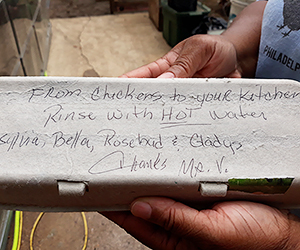 From Chickens to your Kitchen
Rinse with HOT water
Sylvia, Bella, Rosebud & Gladys
Thanks Mr. V.
PHILADELP